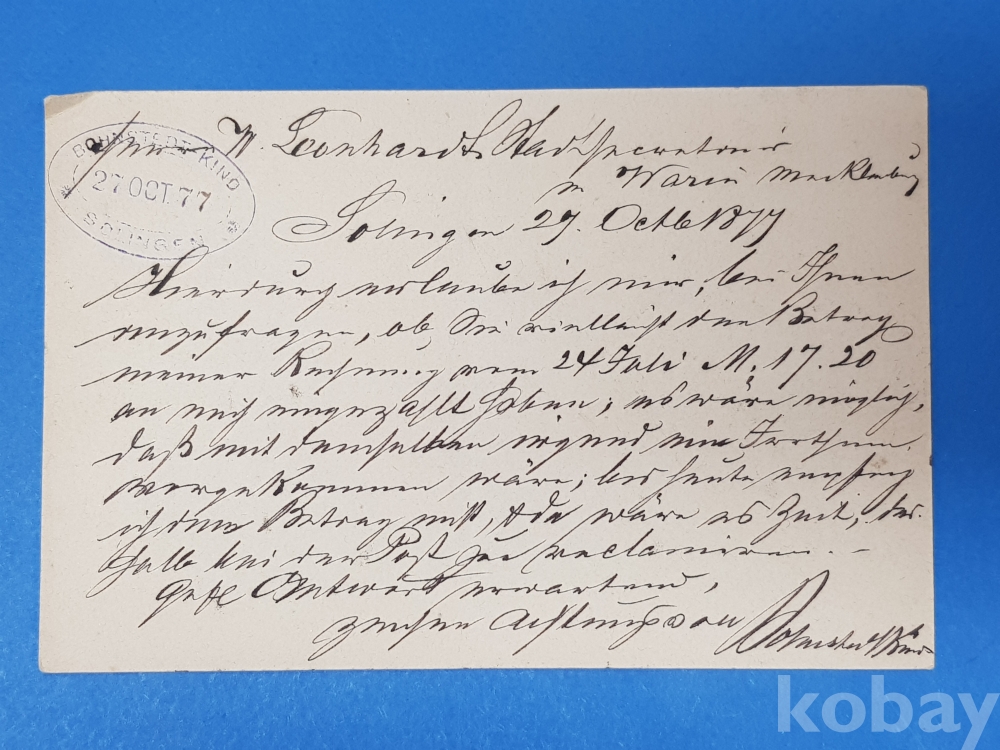 BOHNSTEDT KIND
27 OCT. 77
SOLINGEN
Herrn W. Leonhardt, Stadtsecretair
in Warin Mecklenburg
Solingen 27. Octb 1877
Hierdurch erlaube ich mir, bei Ihnen
anzufragen, ob Sie vielleicht den Betrag
meiner Rechnung vom 24 Juli M. 17.20
an mich eingezahlt haben; es wäre möglich,
daß mit demselben irgend ein Irrthum
vorgekommen wäre; bis heute empfing
ich den Betrag nicht, & da wäre es Zeit, des-
halb bei der Post zu reclamiren. –
Gefl Antwort erwartend,
zeichne Achtungsvoll
Bohnstedt Kind
kobay